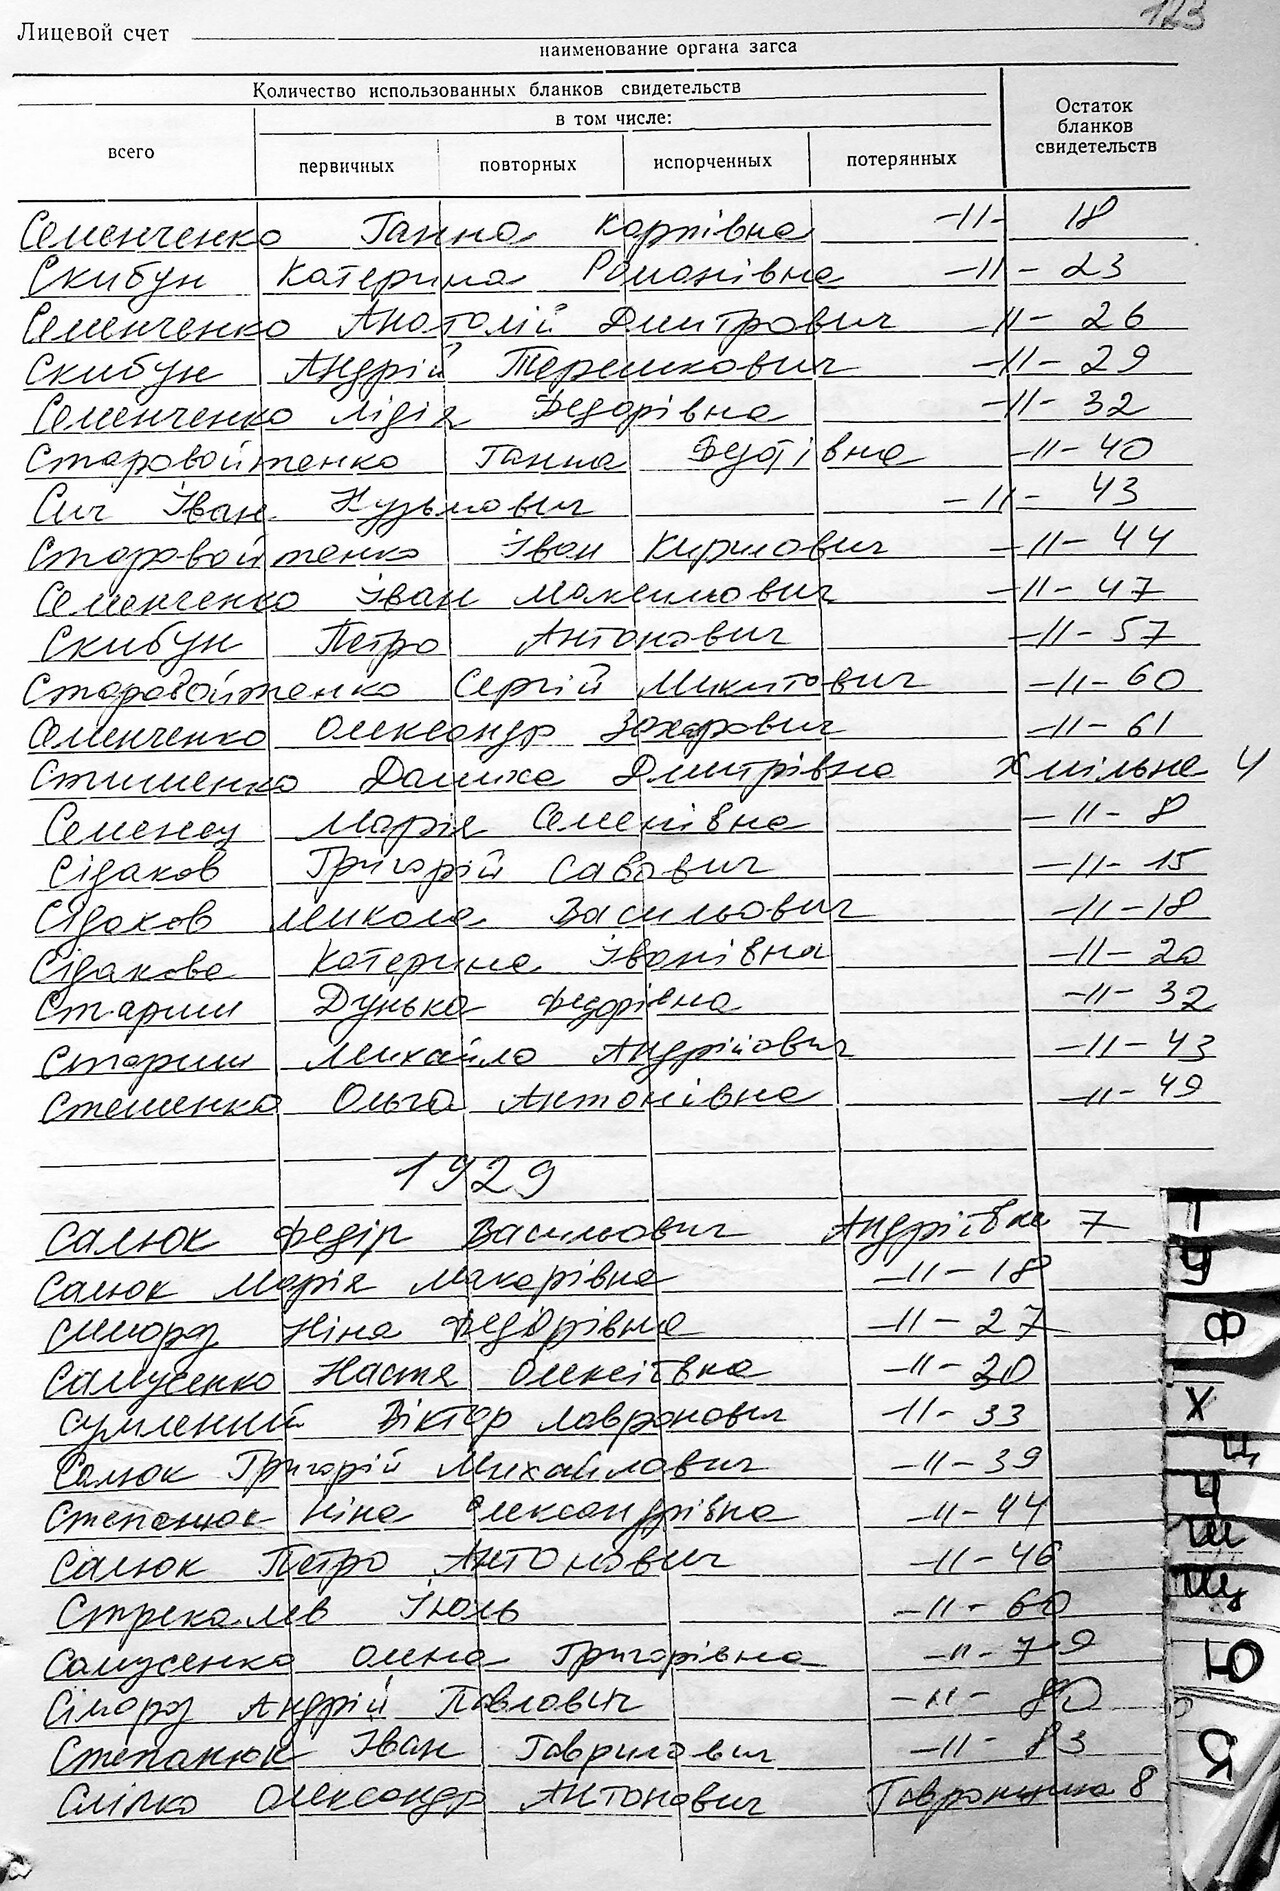 123
Лицевой счет
наименование органа загса
Количество использованных бланков свидетельств
в том числе:
Остаток бланков свидетельств
всего первичных повторных испорченных потерянных
Семенченко Ганна Карпівна -11- 18
Скибун Катерина Романівна -11- 23
Семенченко Анатолій Дмитрович -11- 26
Скибун Андрій Терешкович -11- 29
Семенченко Лідія Федорівна -11- 32
Старовойтенко Ганна Федотівна -11- 40
Сич Іван Кузьмович -11- 43
Старовойтенко Іван Кирилович -11- 44
Семенченко Іван Максимович -11- 47
Скибун Петро Антонович -11- 57
Старовойтенко Сергій Микитович -11- 60
Семенченко Олександр Захарович -11- 61
Дмитрівна Хмільна 4
Семенец Марія Семенівна -11- 8
Сідаков Григорій Савович -11- 15
Сідаков Микола Васильович -11- 18
Сідакова Катерина Іванівна -11- 20
Старши Дунька Федорівна -11- 32
Старши Михайло Андрійович -11- 43
Стешенко Ольга Антонівна -11- 49
1929
Салюк Федір Васильович Андріївка 7
Салюк Марія Макарівна -11- 18
Сімороз Ніна Федорівна -11- 27
Самусенко Настя Олексіївна -11-
Сумленний Віктор Лавронович -11- 33
Салюк Григорій Михайлович -11- 39
Степанюк Ніна Олександрівна -11- 44
Салюк Петро Антонович -11- 46
Стрекалев Июль -11- 60
Самусенко Олена Григорівна -11- 79
Сімороз Андрій Павлович -11- 80
Степанюк Іван Гаврилович -11- 83
Сліпко Олександр Антонович Гавронщина 8
Т
У
Ф
Х
Ц
Ч
Ш
Щ
Ю
Я